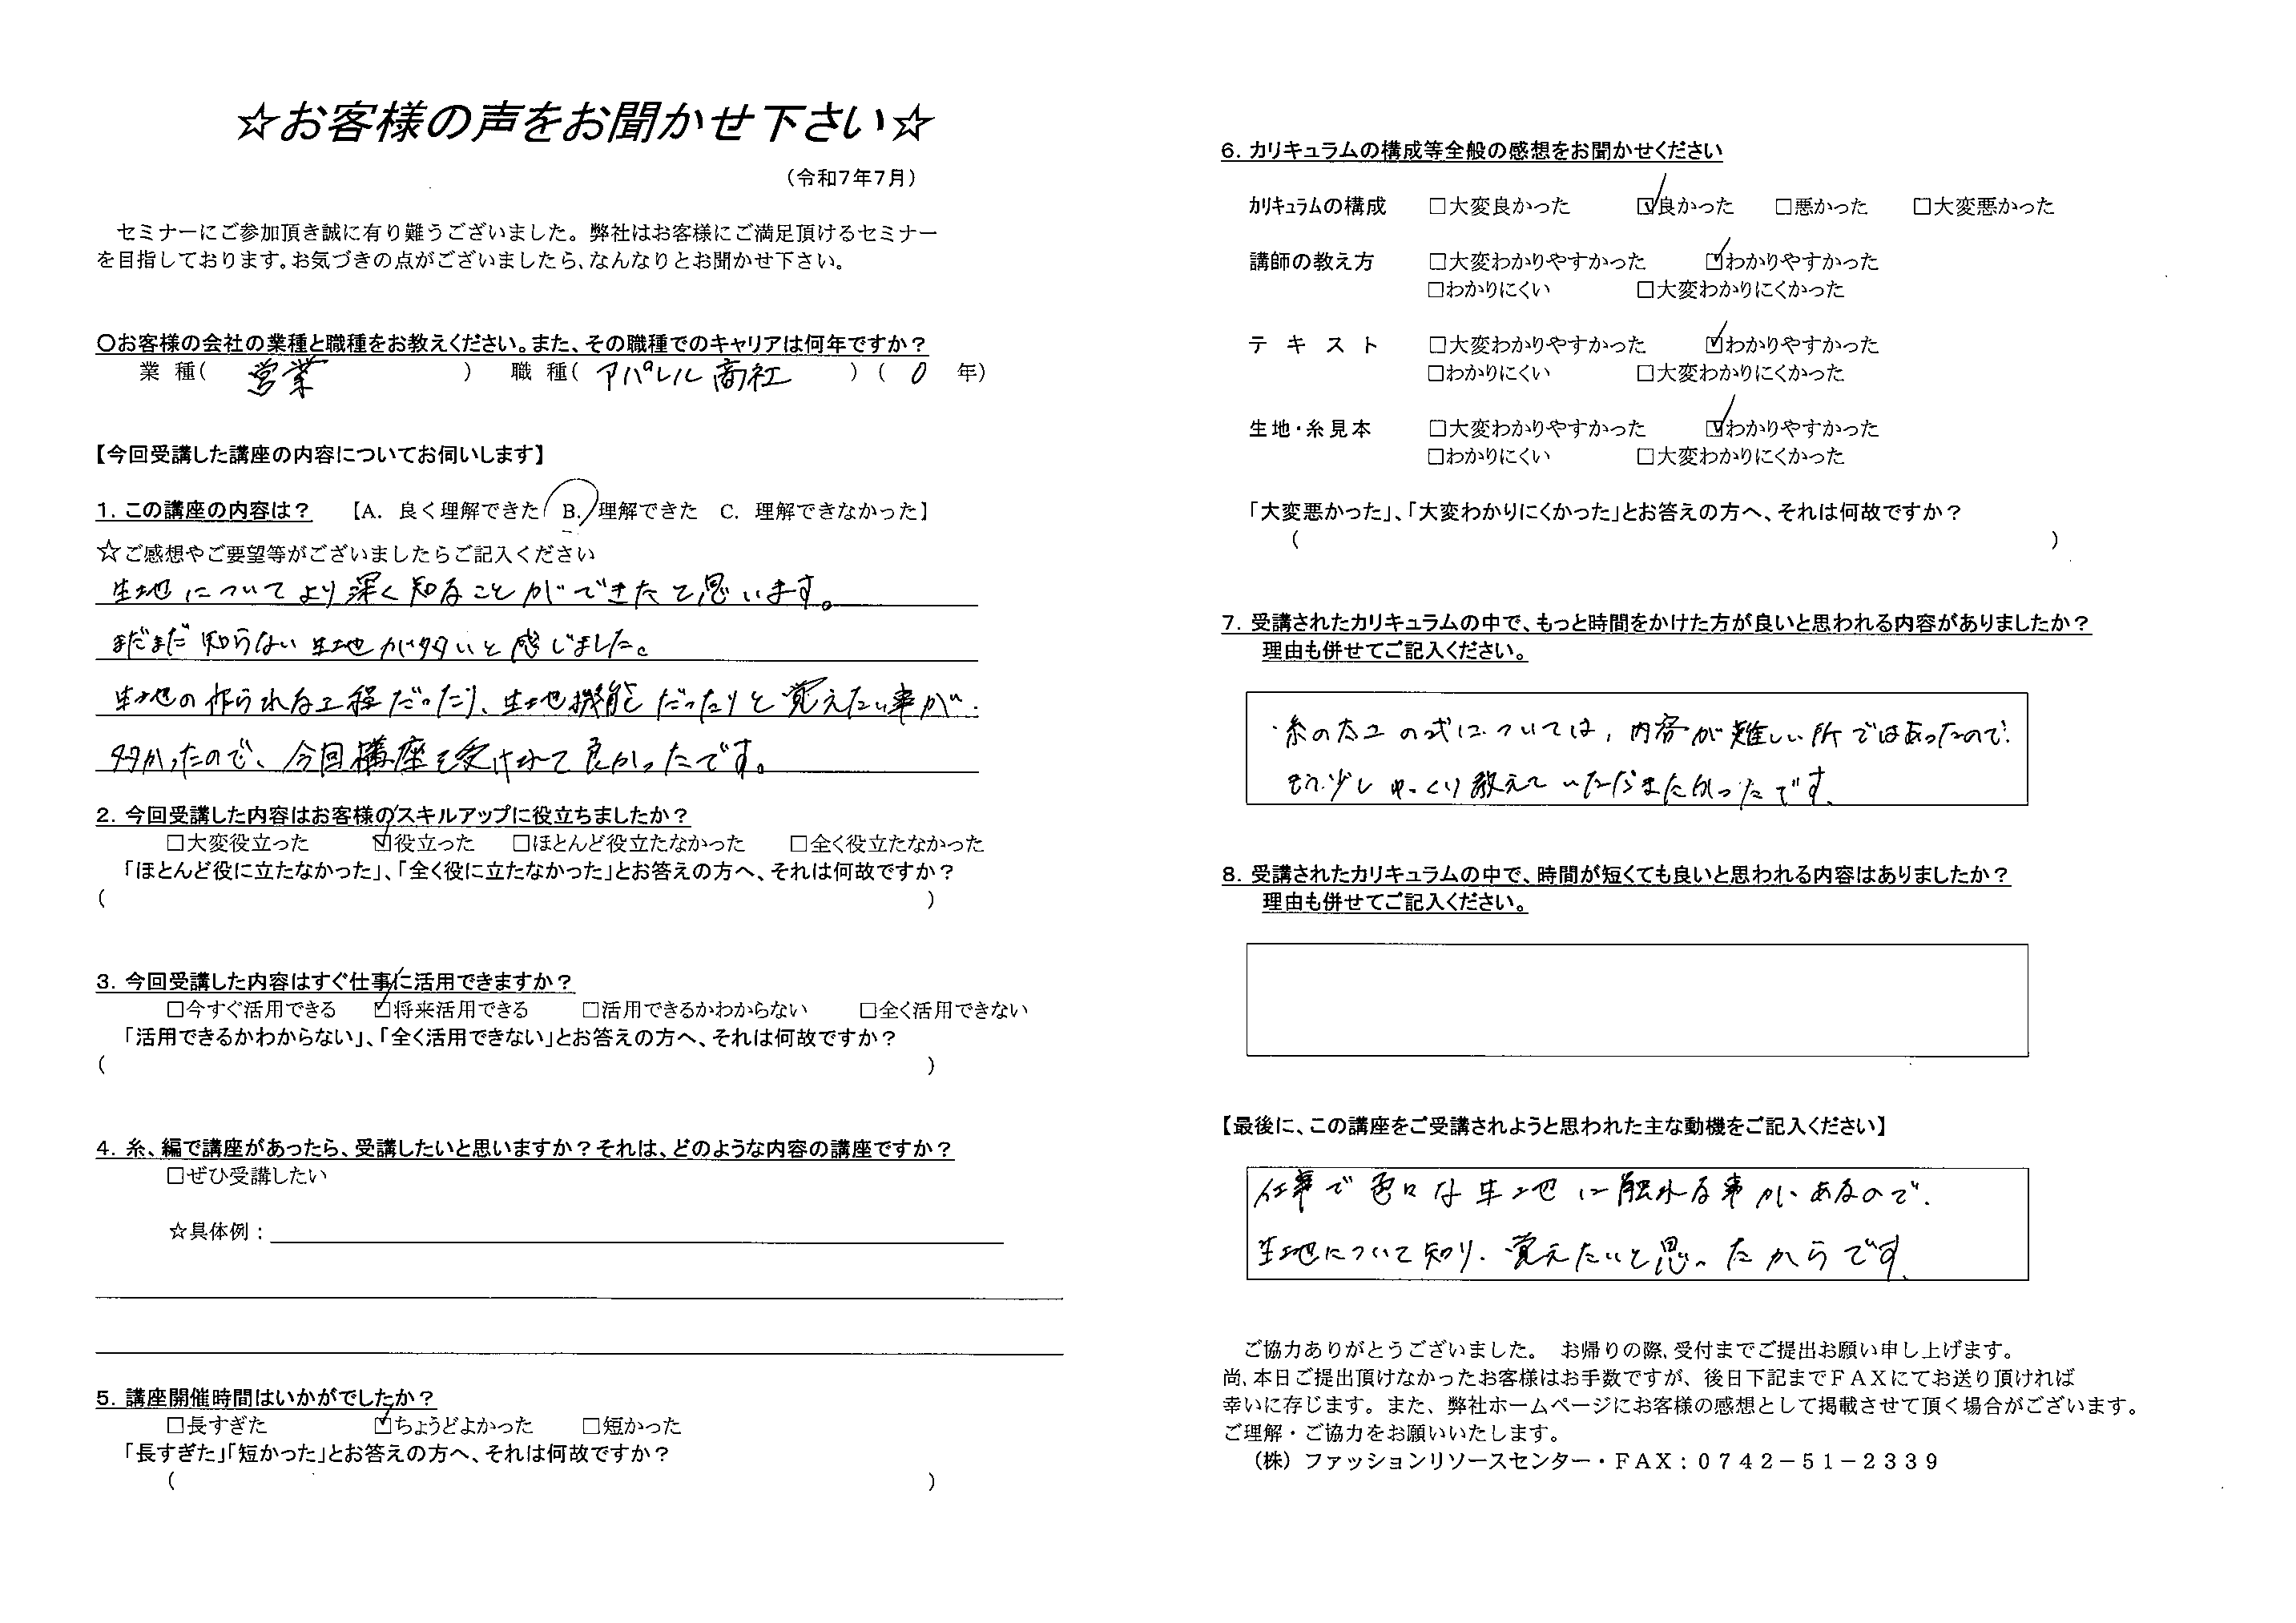 ☆お客様の声をお聞かせ下さい☆
（令和7年7月）
セミナーにご参加頂き誠に有り難うございました。弊社はお客様にご満足頂けるセミナー
を目指しております。お気づきの点がございましたら、なんなりとお聞かせ下さい。
〇お客様の会社の業種と職種をお教えください。また、その職種でのキャリアは何年ですか？
業 種（ 営業 ） 職 種（ アパレル商社 ）（ 0 年）
【今回受講した講座の内容についてお伺いします】
1. この講座の内容は？ 【A. 良く理解できた B. 理解できた C. 理解できなかった】
☆ご感想やご要望等がございましたらご記入ください
生地についてより深く知ることができたと思います。
まだまだ知らない生地が多いと感じました。
生地の作られる工程だったり、生地機能だったりと覚えたい事が
多かったので、今回講座を受けれて良かったです。
2. 今回受講した内容はお客様のスキルアップに役立ちましたか？
□大変役立った ☑役立った □ほとんど役立たなかった □全く役立たなかった
「ほとんど役に立たなかった」、「全く役に立たなかった」とお答えの方へ、それは何故ですか？
（ ）
3. 今回受講した内容はすぐ仕事に活用できますか？
□今すぐ活用できる ☑将来活用できる □活用できるかわからない □全く活用できない
「活用できるかわからない」、「全く活用できない」とお答えの方へ、それは何故ですか？
（ ）
4. 糸、編で講座があったら、受講したいと思いますか？それは、どのような内容の講座ですか？
□ぜひ受講したい
☆具体例：
5. 講座開催時間はいかがでしたか？
□長すぎた ☑ちょうどよかった □短かった
「長すぎた」「短かった」とお答えの方へ、それは何故ですか？
（ ）
6. カリキュラムの構成等全般の感想をお聞かせください
カリキュラムの構成 □大変良かった ☑良かった □悪かった □大変悪かった
講師の教え方 □大変わかりやすかった ☑わかりやすかった
□わかりにくい □大変わかりにくかった
テ キ ス ト □大変わかりやすかった ☑わかりやすかった
□わかりにくい □大変わかりにくかった
生地・糸見本 □大変わかりやすかった ☑わかりやすかった
□わかりにくい □大変わかりにくかった
「大変悪かった」、「大変わかりにくかった」とお答えの方へ、それは何故ですか？
（ ）
7. 受講されたカリキュラムの中で、もっと時間をかけた方が良いと思われる内容がありましたか？
理由も併せてご記入ください。
・糸の太さの式については、内容が難しい所ではあったので、
もう少しゆっくり教えていただきたかったです。
8. 受講されたカリキュラムの中で、時間が短くても良いと思われる内容はありましたか？
理由も併せてご記入ください。
【最後に、この講座をご受講されようと思われた主な動機をご記入ください】
仕事で色々な生地に触れる事があるので、
生地について知り、覚えたいと思ったからです。
ご協力ありがとうございました。 お帰りの際、受付までご提出お願い申し上げます。
尚、本日ご提出頂けなかったお客様はお手数ですが、後日下記までＦＡＸにてお送り頂ければ
幸いに存じます。また、弊社ホームページにお客様の感想として掲載させて頂く場合がございます。
ご理解・ご協力をお願いいたします。
（株）ファッションリソースセンター・ＦＡＸ：０７４２－５１－２３３９